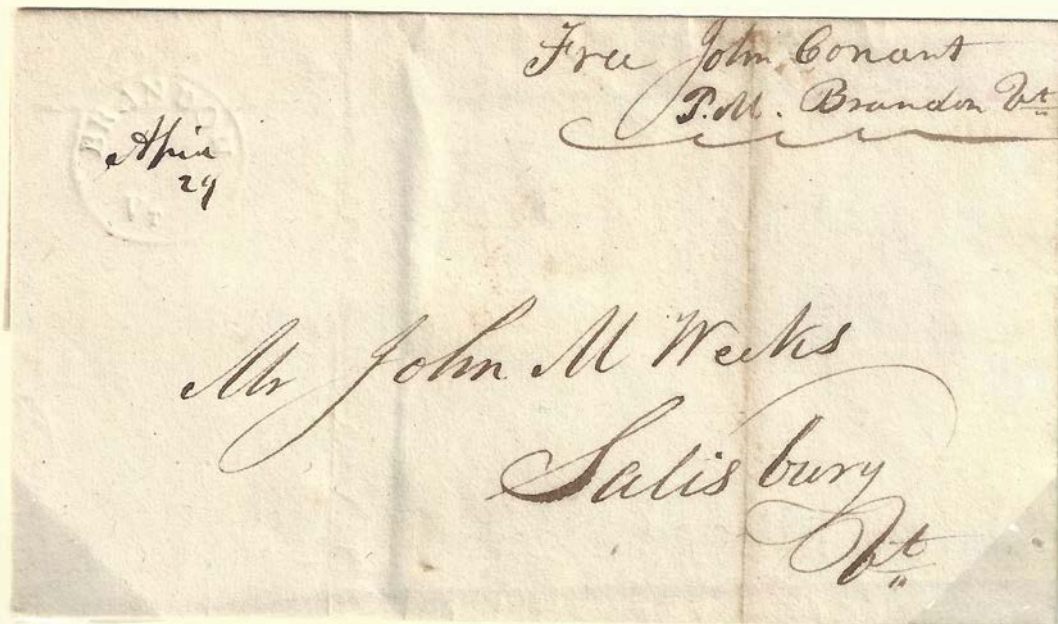 Free John Conant
P.M. Brandon Vt
BRANDON
April
29
VT
Mr John M Weeks
Salisbury
Vt